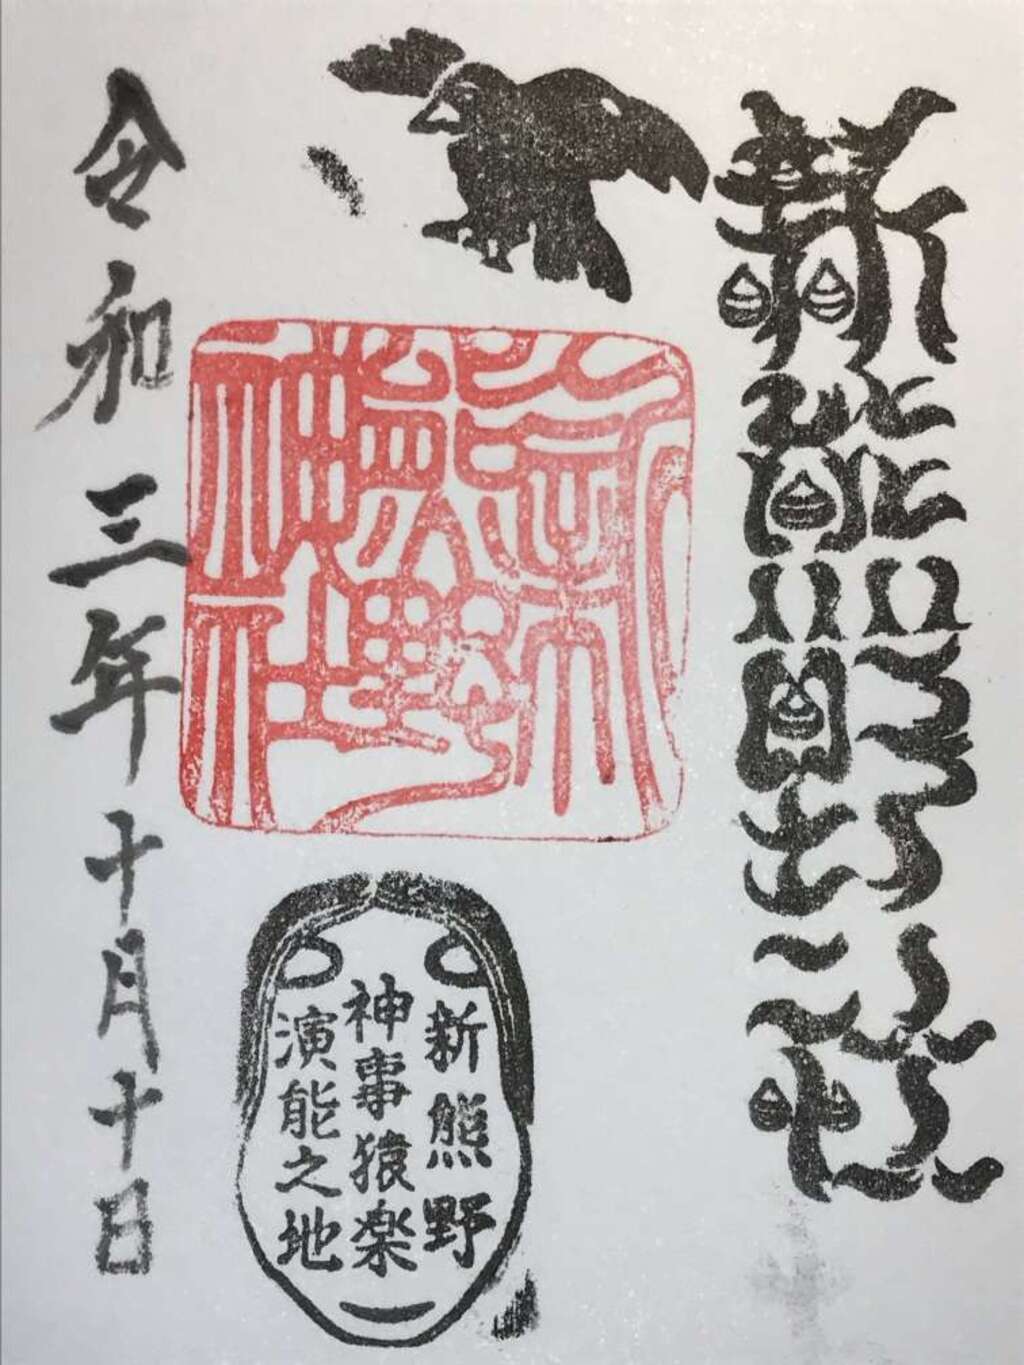 新熊野社
新熊
野権
現社
新熊野
神事猿楽
演能之地
令和三年十月十日